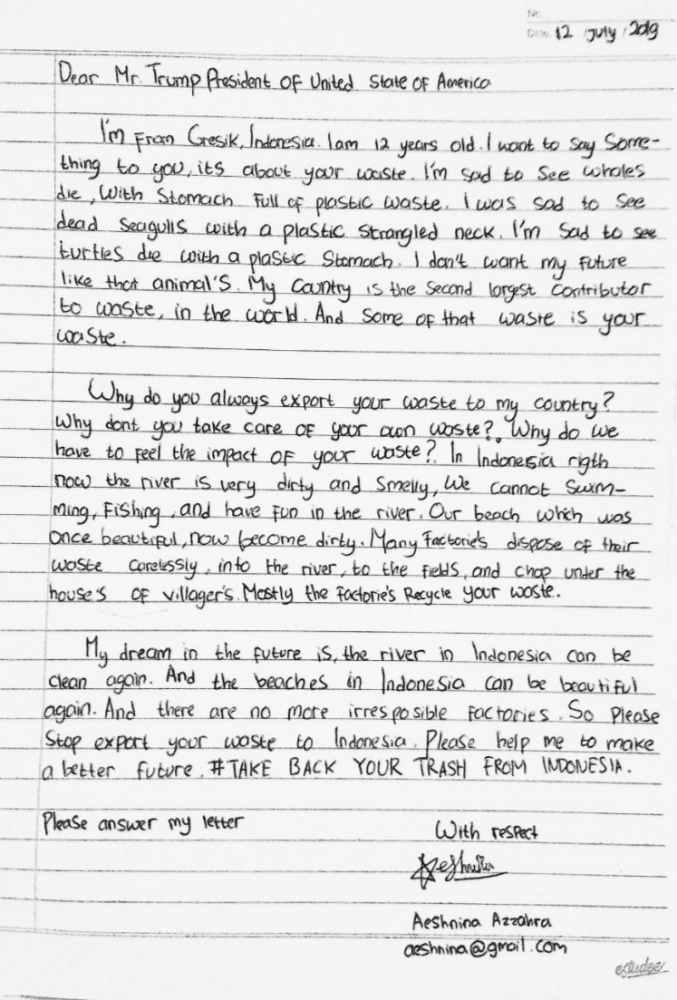 No:
Date: 12 July 2019
Dear Mr. Trump President of United State of America
I'm From Gresik, Indonesia. I am 12 years old. I want to say Some-
thing to you, its about your waste. I'm sad to See whales
die, With Stomach Full of plastic waste. I was sad to See
dead Seagulls with a plastic strangled neck. I'm Sad to see
turtles die with a plastic Stomach. I don't want my Future
like that animal's. My Country is the Second largest Contributor
to waste, in the world. And Some of that waste is your
waste.
Why do you always export your waste to my country?
Why dont you take care of your own waste? Why do we
have to feel the impact of your waste? In Indonesia rigth
now the river is very dirty and Smelly, We cannot Swim-
ming, Fishing, and have Fun in the river. Our beach which was
Once beautiful, now become dirty. Many Factorie's dispose of their
waste carelessly, into the river, to the fields, and chop under the
house's of villager's. Mostly the Factorie's Recycle your waste.
My dream in the future is, the river in Indonesia can be
clean again. And the beaches in Indonesia can be beautiful
again. And there are no more irresposible Factories. So Please
Stop export your waste to Indonesia. Please help me to make
a better future. #TAKE BACK YOUR TRASH FROM INDONESIA.
Please answer my letter
With respect
Aeshnina Azzahra
aeshnina@gmail.com